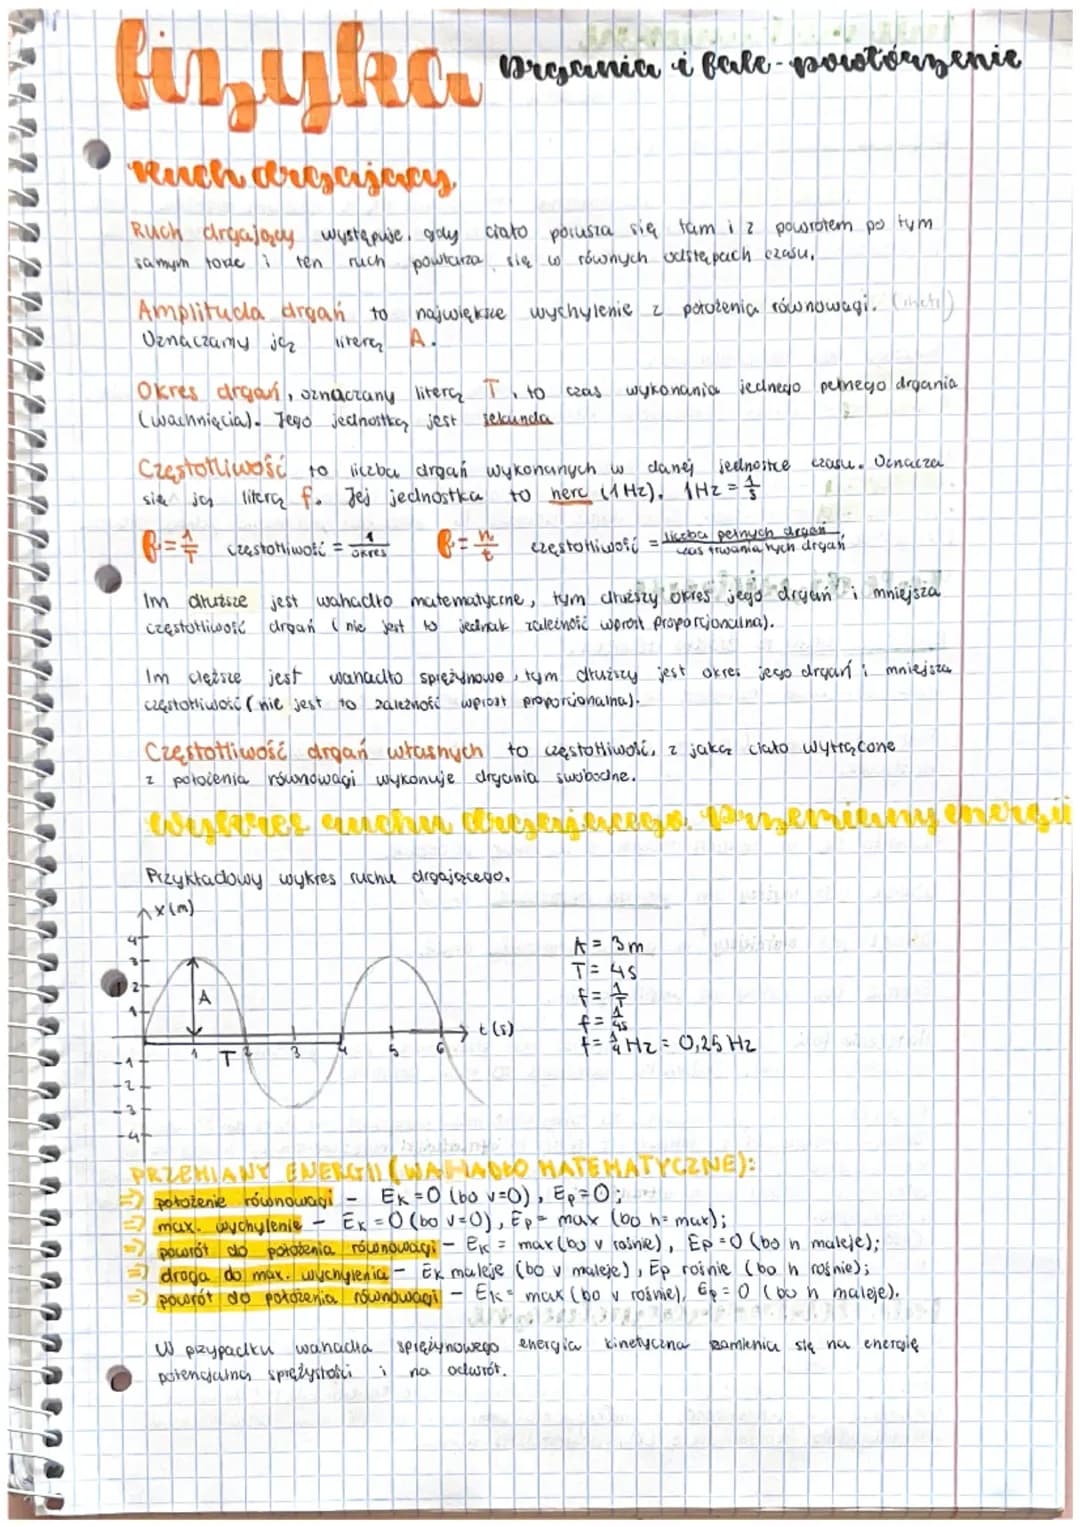 fizyka drgania i fale - powtórzenie
ruch drgający
Ruch drgający występuje, gdy ciało porusza się tam i z powrotem po tym
samym torze i ten ruch powtarza się w równych odstępach czasu.
Amplituda drgań to największe wychylenie z położenia równowagi. (metr)
Oznaczamy ją literą A.
Okres drgań, oznaczany literą T, to czas wykonania jednego pełnego drgania
(wachnięcia). Jego jednostką jest sekunda
Częstotliwość to liczba drgań wykonanych w danej jednostce czasu. Oznacza
się ją literą f. Jej jednostka to herc (1Hz). 1Hz = 1/s
f = 1/T częstotliwość = 1/okres f = n/t częstotliwość = liczba pełnych drgań/czas trwania tych drgań
Im dłuższe jest wahadło matematyczne, tym dłuższy okres jego drgań i mniejsza
częstotliwość drgań (nie jest to jednak zależność wprost proporcjonalna).
Im cięższe jest wahadło sprężynowe, tym dłuższy jest okres jego drgań i mniejsza
częstotliwość (nie jest to zależność wprost proporcjonalna).
Częstotliwość drgań własnych to częstotliwość, z jaką ciało wytrącone
z położenia równowagi wykonuje drgania swobodne.
Wykres ruchu drgającego. Przemiany energii
Przykładowy wykres ruchu drgającego.
x(m)
4
3
2
1
A
t(s)
1 T 2 3 4 5 6
-1
-2
-3
-4
A = 3m
T = 4s
f = 1/T
f = 1/4s
f = 1/4 Hz = 0,25 Hz
PRZEMIANY ENERGII (WAHADŁO MATEMATYCZNE):
=> położenie równowagi - Ek = 0 (bo v=0), Ep = 0;
=> max. wychylenie - Ek = 0 (bo v=0), Ep = max (bo h = max);
=> powrót do położenia równowagi - Ek = max (bo v rośnie), Ep = 0 (bo h maleje);
=> droga do max. wychylenia - Ek maleje (bo v maleje), Ep rośnie (bo h rośnie);
=> powrót do położenia równowagi - Ek = max (bo v rośnie), Ep = 0 (bo h maleje).
W przypadku wahadła sprężynowego energia kinetyczna zamienia się na energię
potencjalną sprężystości i na odwrót.